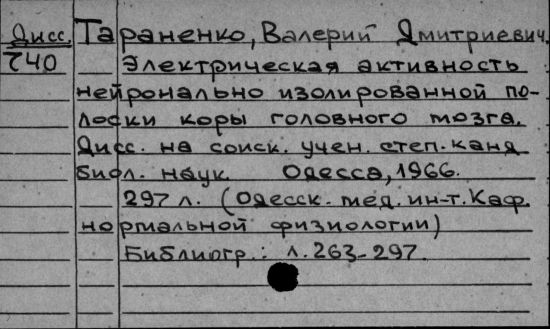 Дисс. Тараненко, Валерий Дмитриевич.
740 Электрическая активность
нейронально изолированной по-
лоски коры головного мозга.
Дисс. на соиск. учен. степ. канд
биол. наук. Одесса, 1966.
297 л. (Одесск. мед. ин-т. Каф.
нормальной физиологии)
Библиогр.: л. 263-297.